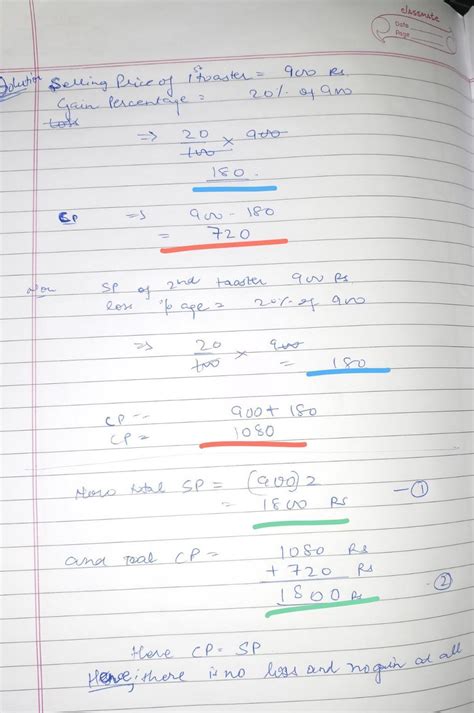 classmate
Date
Page
Solution Selling Price of 1st toaster = 900 Rs.
Gain Percentage = 20% of 900
Loss
=> 20/100 × 900
180.
CP => 900 - 180
= 720
Now SP of 2nd toaster 900 Rs.
loss %age = 20% of 900
=> 20/100 × 900
= 180
CP = 900 + 180
CP = 1080
Now total SP = (900) 2
= 1800 Rs — ①
and total CP = 1080 Rs
+ 720 Rs
1800 Rs ②
Here CP = SP
Hence, there is no loss and no gain at all